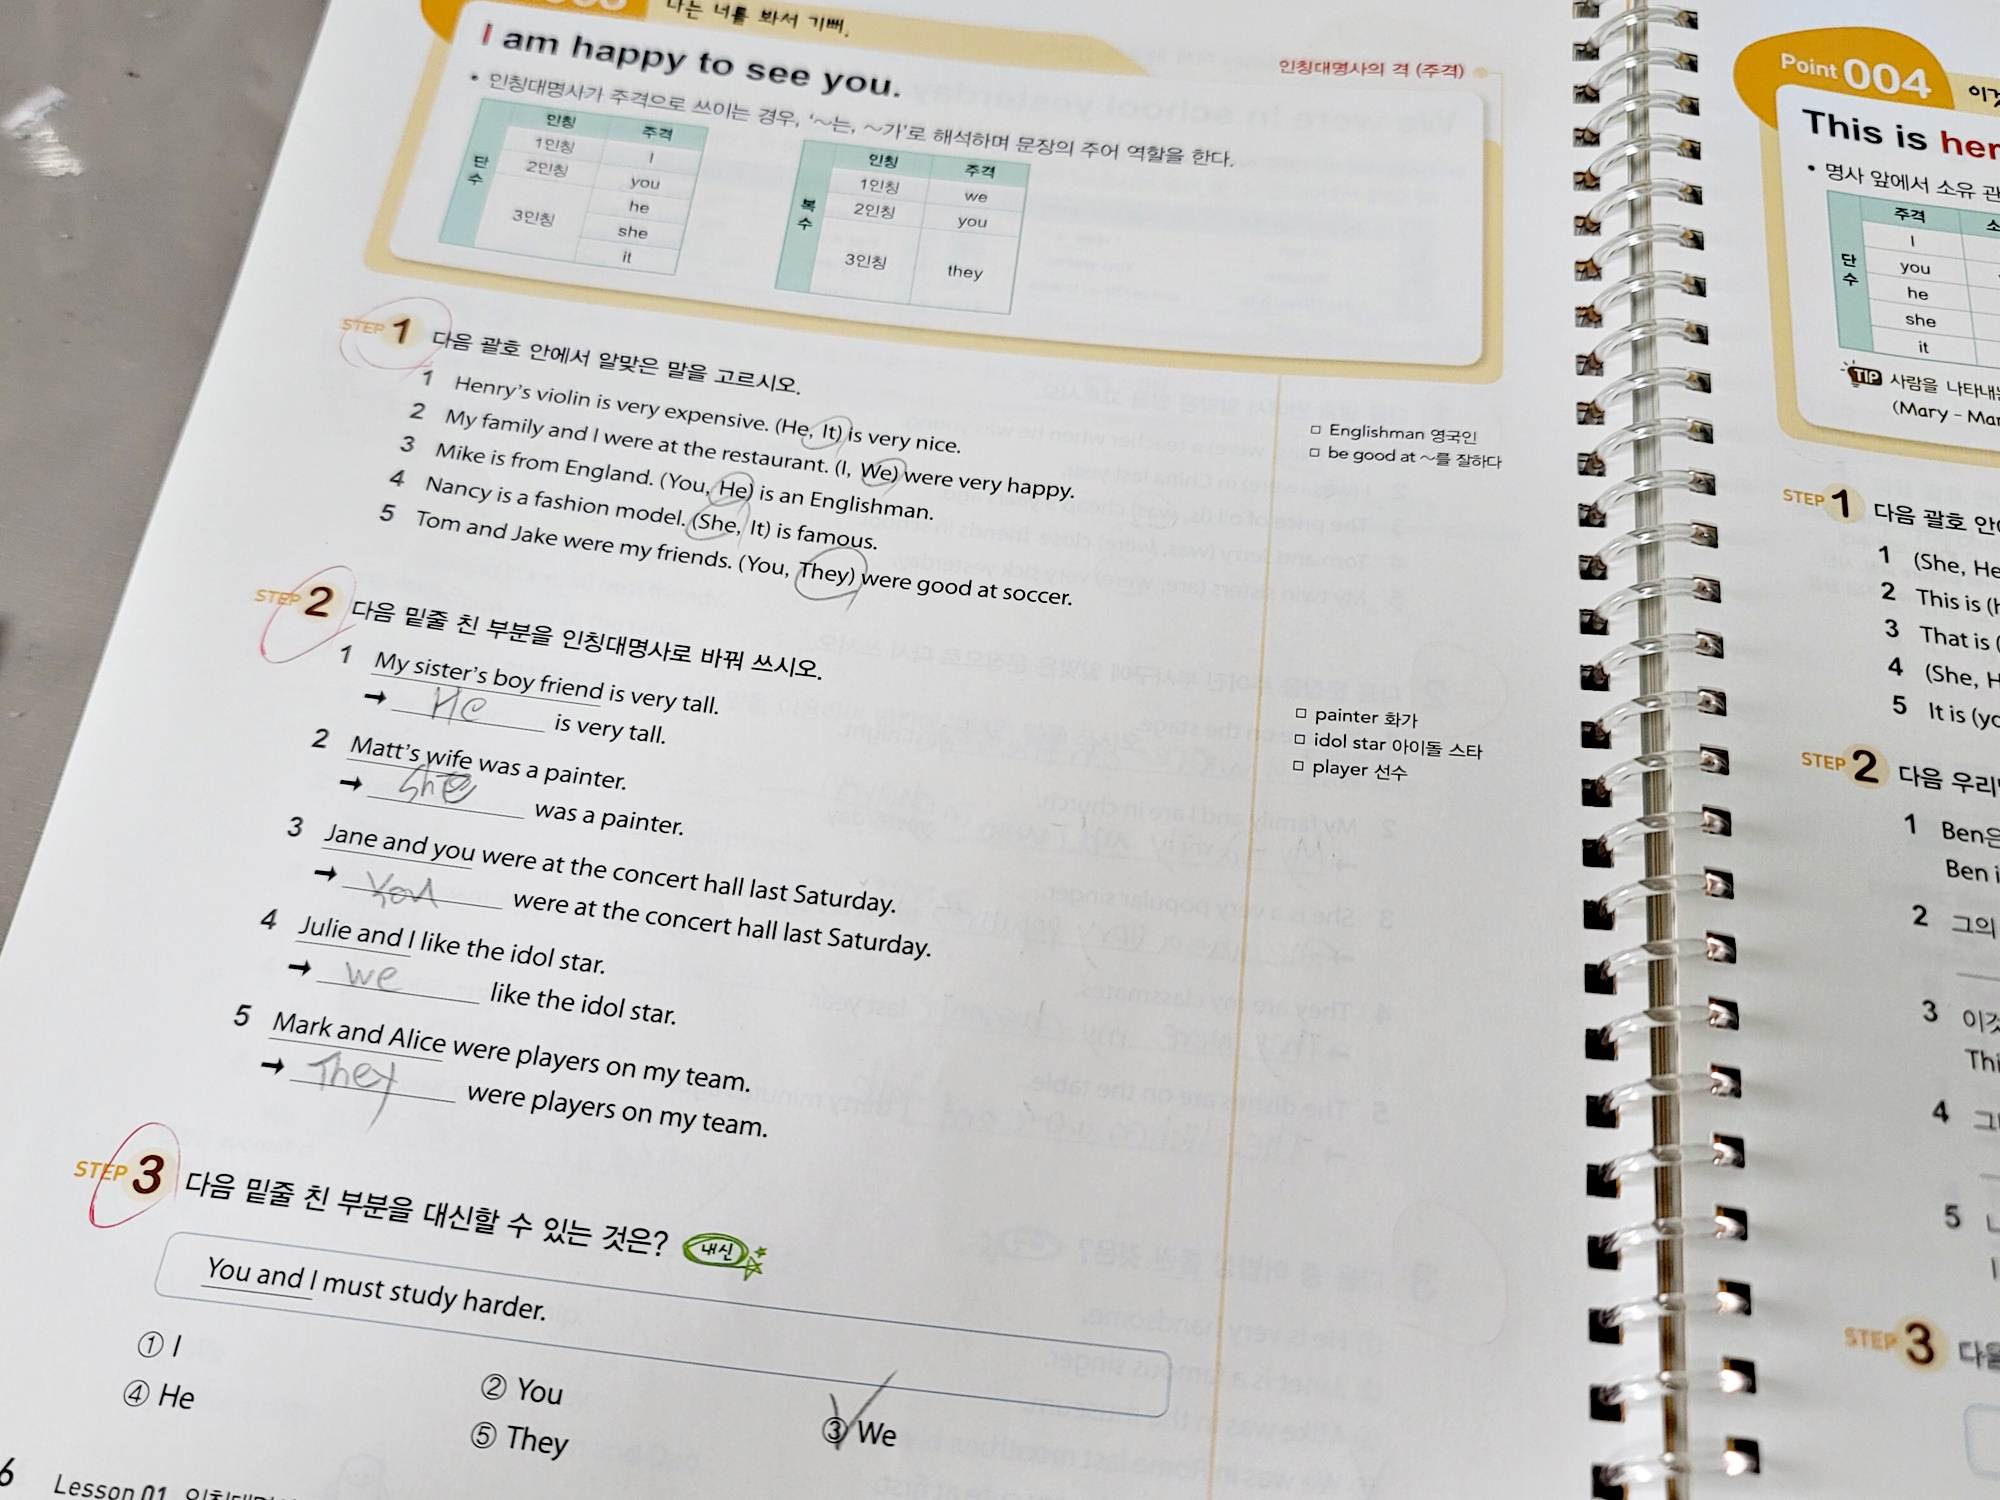 나는 너를 봐서 기뻐.
I am happy to see you.
인칭대명사의 격 (주격)
• 인칭대명사가 주격으로 쓰이는 경우, '~는, ~가'로 해석하며 문장의 주어 역할을 한다.
인칭 주격
단수
1인칭 I
2인칭 you
3인칭
he
she
it
인칭 주격
복수
1인칭 we
2인칭 you
3인칭 they
STEP 1 다음 괄호 안에서 알맞은 말을 고르시오.
1 Henry's violin is very expensive. (He, It) is very nice.
2 My family and I were at the restaurant. (I, We) were very happy.
3 Mike is from England. (You, He) is an Englishman.
4 Nancy is a fashion model. (She, It) is famous.
5 Tom and Jake were my friends. (You, They) were good at soccer.
□ Englishman 영국인
□ be good at ~를 잘하다
STEP 2 다음 밑줄 친 부분을 인칭대명사로 바꿔 쓰시오.
1 My sister's boy friend is very tall.
→ He is very tall.
2 Matt's wife was a painter.
→ she was a painter.
3 Jane and you were at the concert hall last Saturday.
→ You were at the concert hall last Saturday.
4 Julie and I like the idol star.
→ we like the idol star.
5 Mark and Alice were players on my team.
→ They were players on my team.
□ painter 화가
□ idol star 아이돌 스타
□ player 선수
STEP 3 다음 밑줄 친 부분을 대신할 수 있는 것은? 내신
You and I must study harder.
① I
② You
③ We
④ He
⑤ They
6 Lesson 01
Point 004
This is her
• 명사 앞에서 소유
주격
단수
I
you
he
she
it
TIP 사람을 나타내는
(Mary - Mar
STEP 1 다음 괄호 안
1 (She, He
2 This is (h
3 That is (
4 (She, H
5 It is (yo
STEP 2 다음 우리
1 Ben은
Ben i
2 그의
3 이것
Thi
4
5
STEP 3 다음